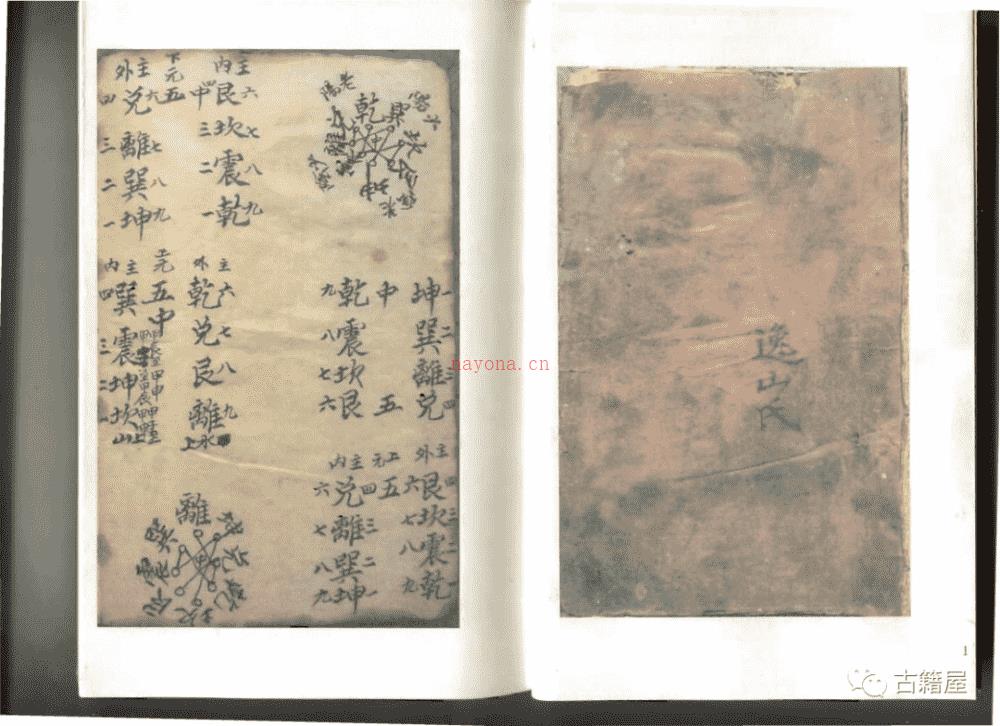 逸山氏
1
主六
内
艮
坎七
震八
乾九
中四
三
二
一
下元
五
主
外
兑六
離七
巽八
坤九
四
三
二
一
老陽
乾
離
坤
主六
外
乾
兑七
艮八
離九
上水
上元
五
中
主
内
巽四
震三
坤二
坎一
山上
離
坤一
巽二
離三
兑四
中
五
乾九
震八
坎七
艮六
主
外
艮四
坎三
震二
乾一
六
七
八
九
上元
五
主
内
兑四
離三
巽二
坤一
六
七
八
九
nayona.cn
古籍屋